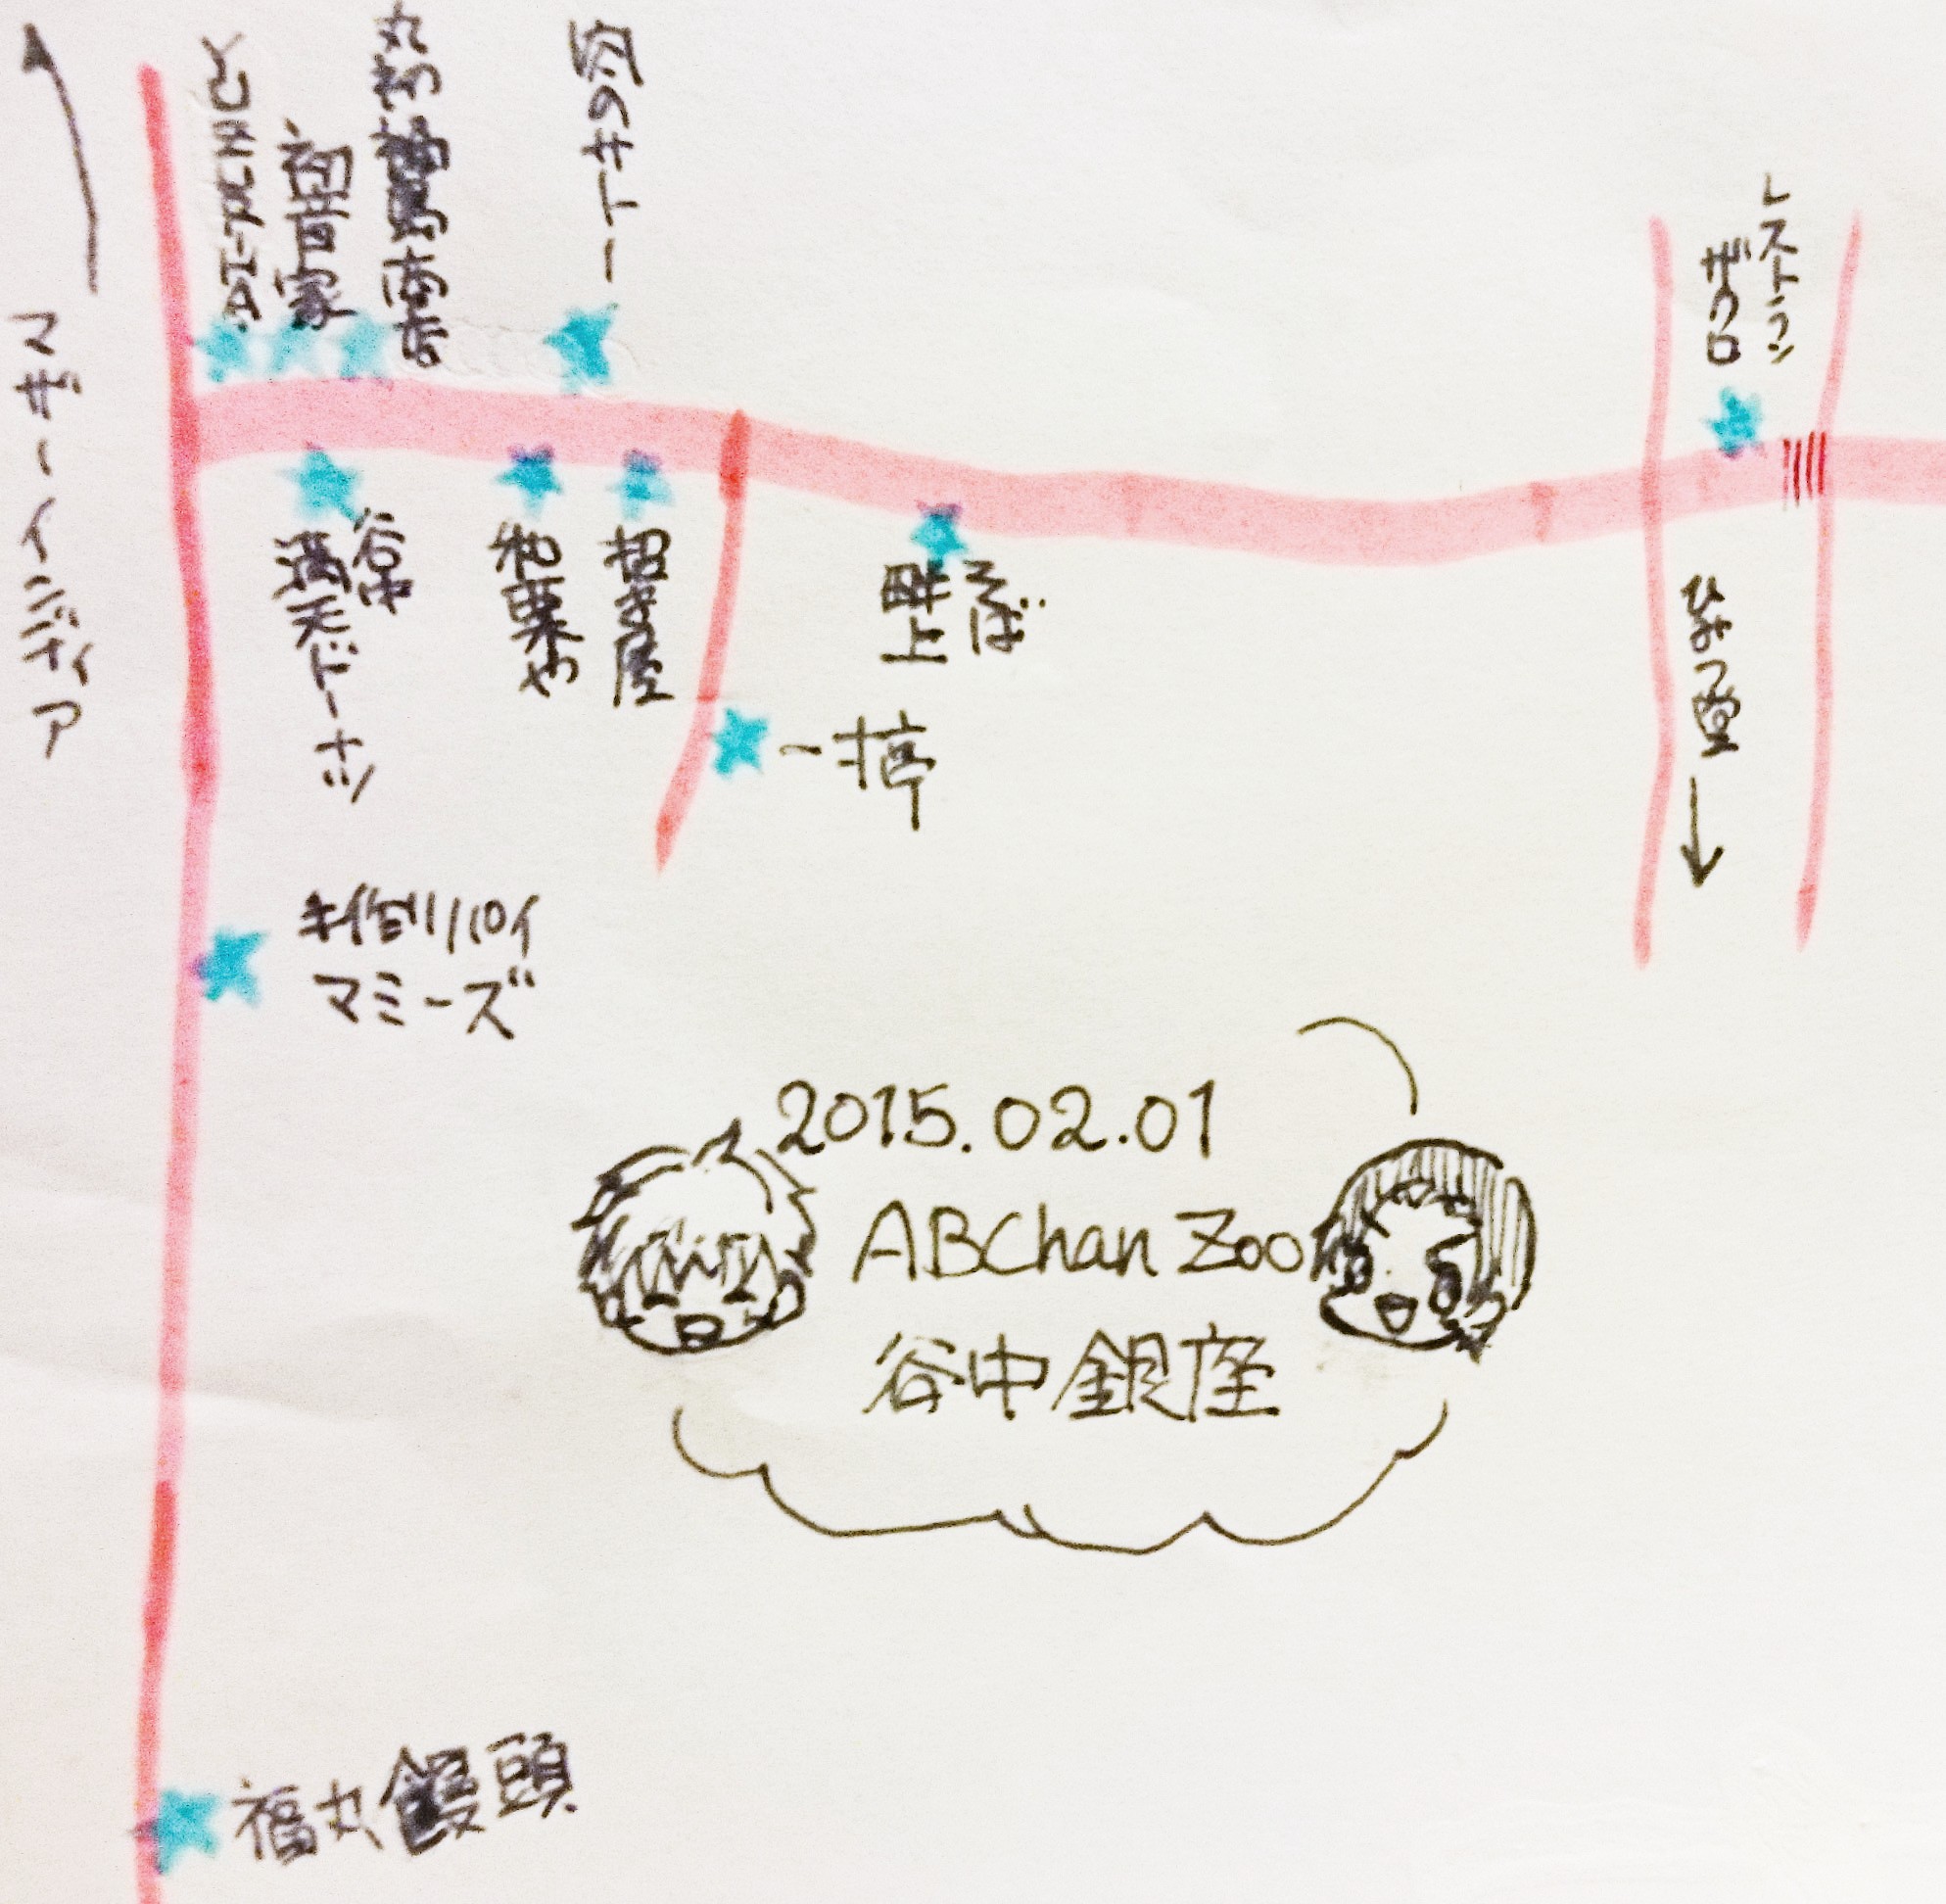 マザーインディア
初音家
丸初福島商店
肉のサトー
レストラン
ザクロ
谷中
満天ドーナツ
和栗や
招き屋
そば
畔上
一寸亭
ひみつ堂
手作りパイ
マミーズ
2015.02.01
ABChan Zoo
谷中銀座
福丸饅頭